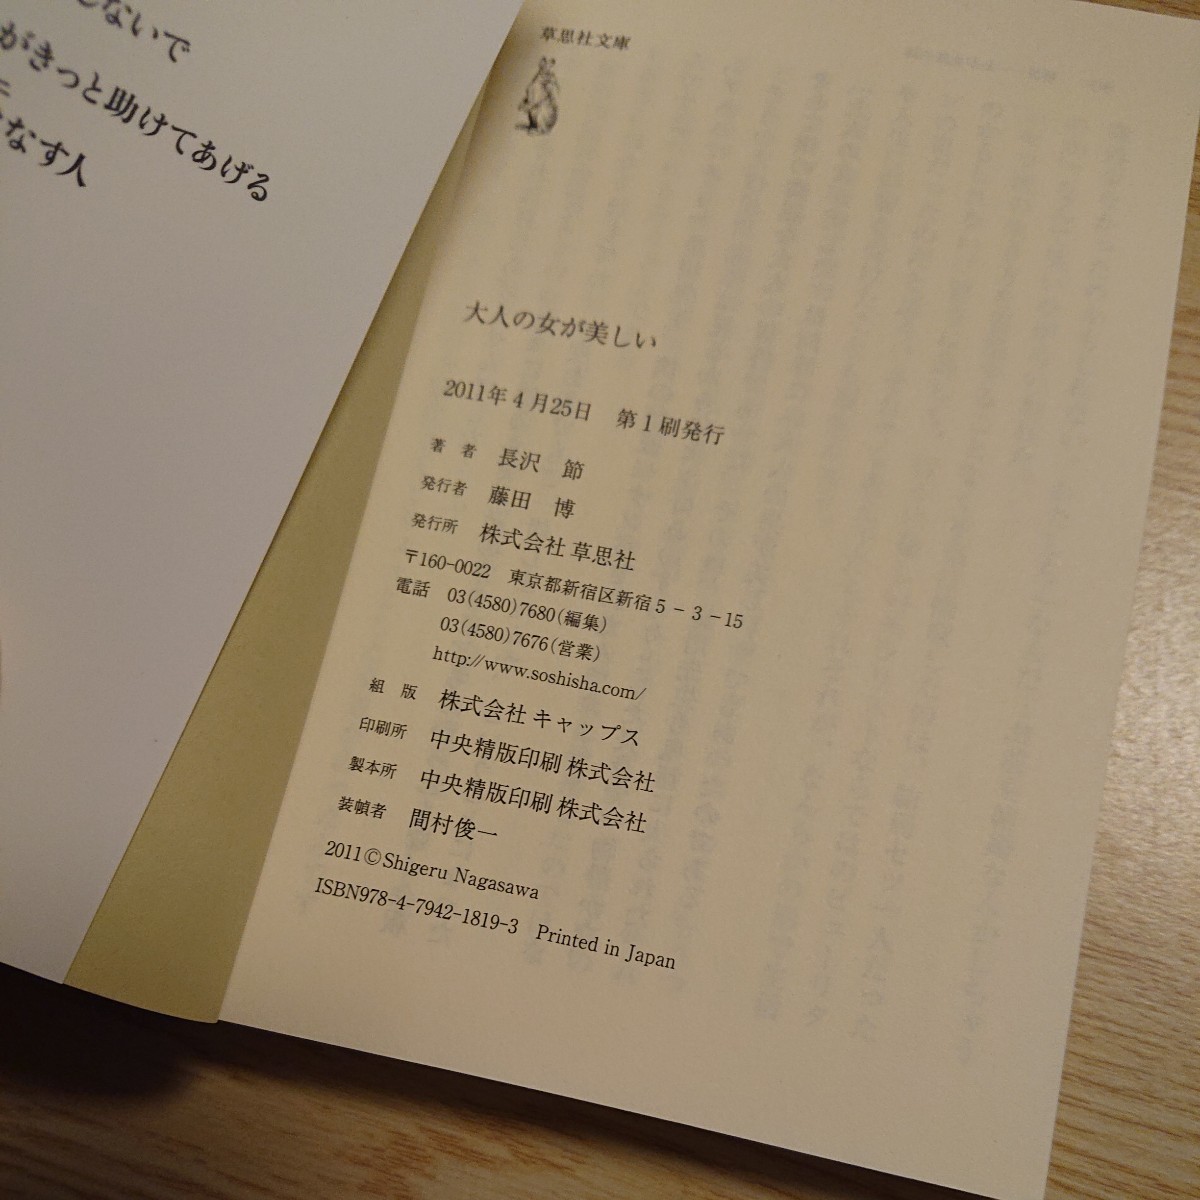 ないで
がきっと助けてあげる
なす人
草思社文庫
大人の女が美しい
2011年4月25日　第1刷発行
著　者　長沢　節
発行者　藤田　博
発行所　株式会社 草思社
〒160-0022　東京都新宿区新宿5－3－15
電話　03(4580)7680(編集)
03(4580)7676(営業)
http://www.soshisha.com/
組　版　株式会社 キャップス
印刷所　中央精版印刷 株式会社
製本所　中央精版印刷 株式会社
装幀者　間村俊一
2011©Shigeru Nagasawa
ISBN978-4-7942-1819-3　Printed in Japan